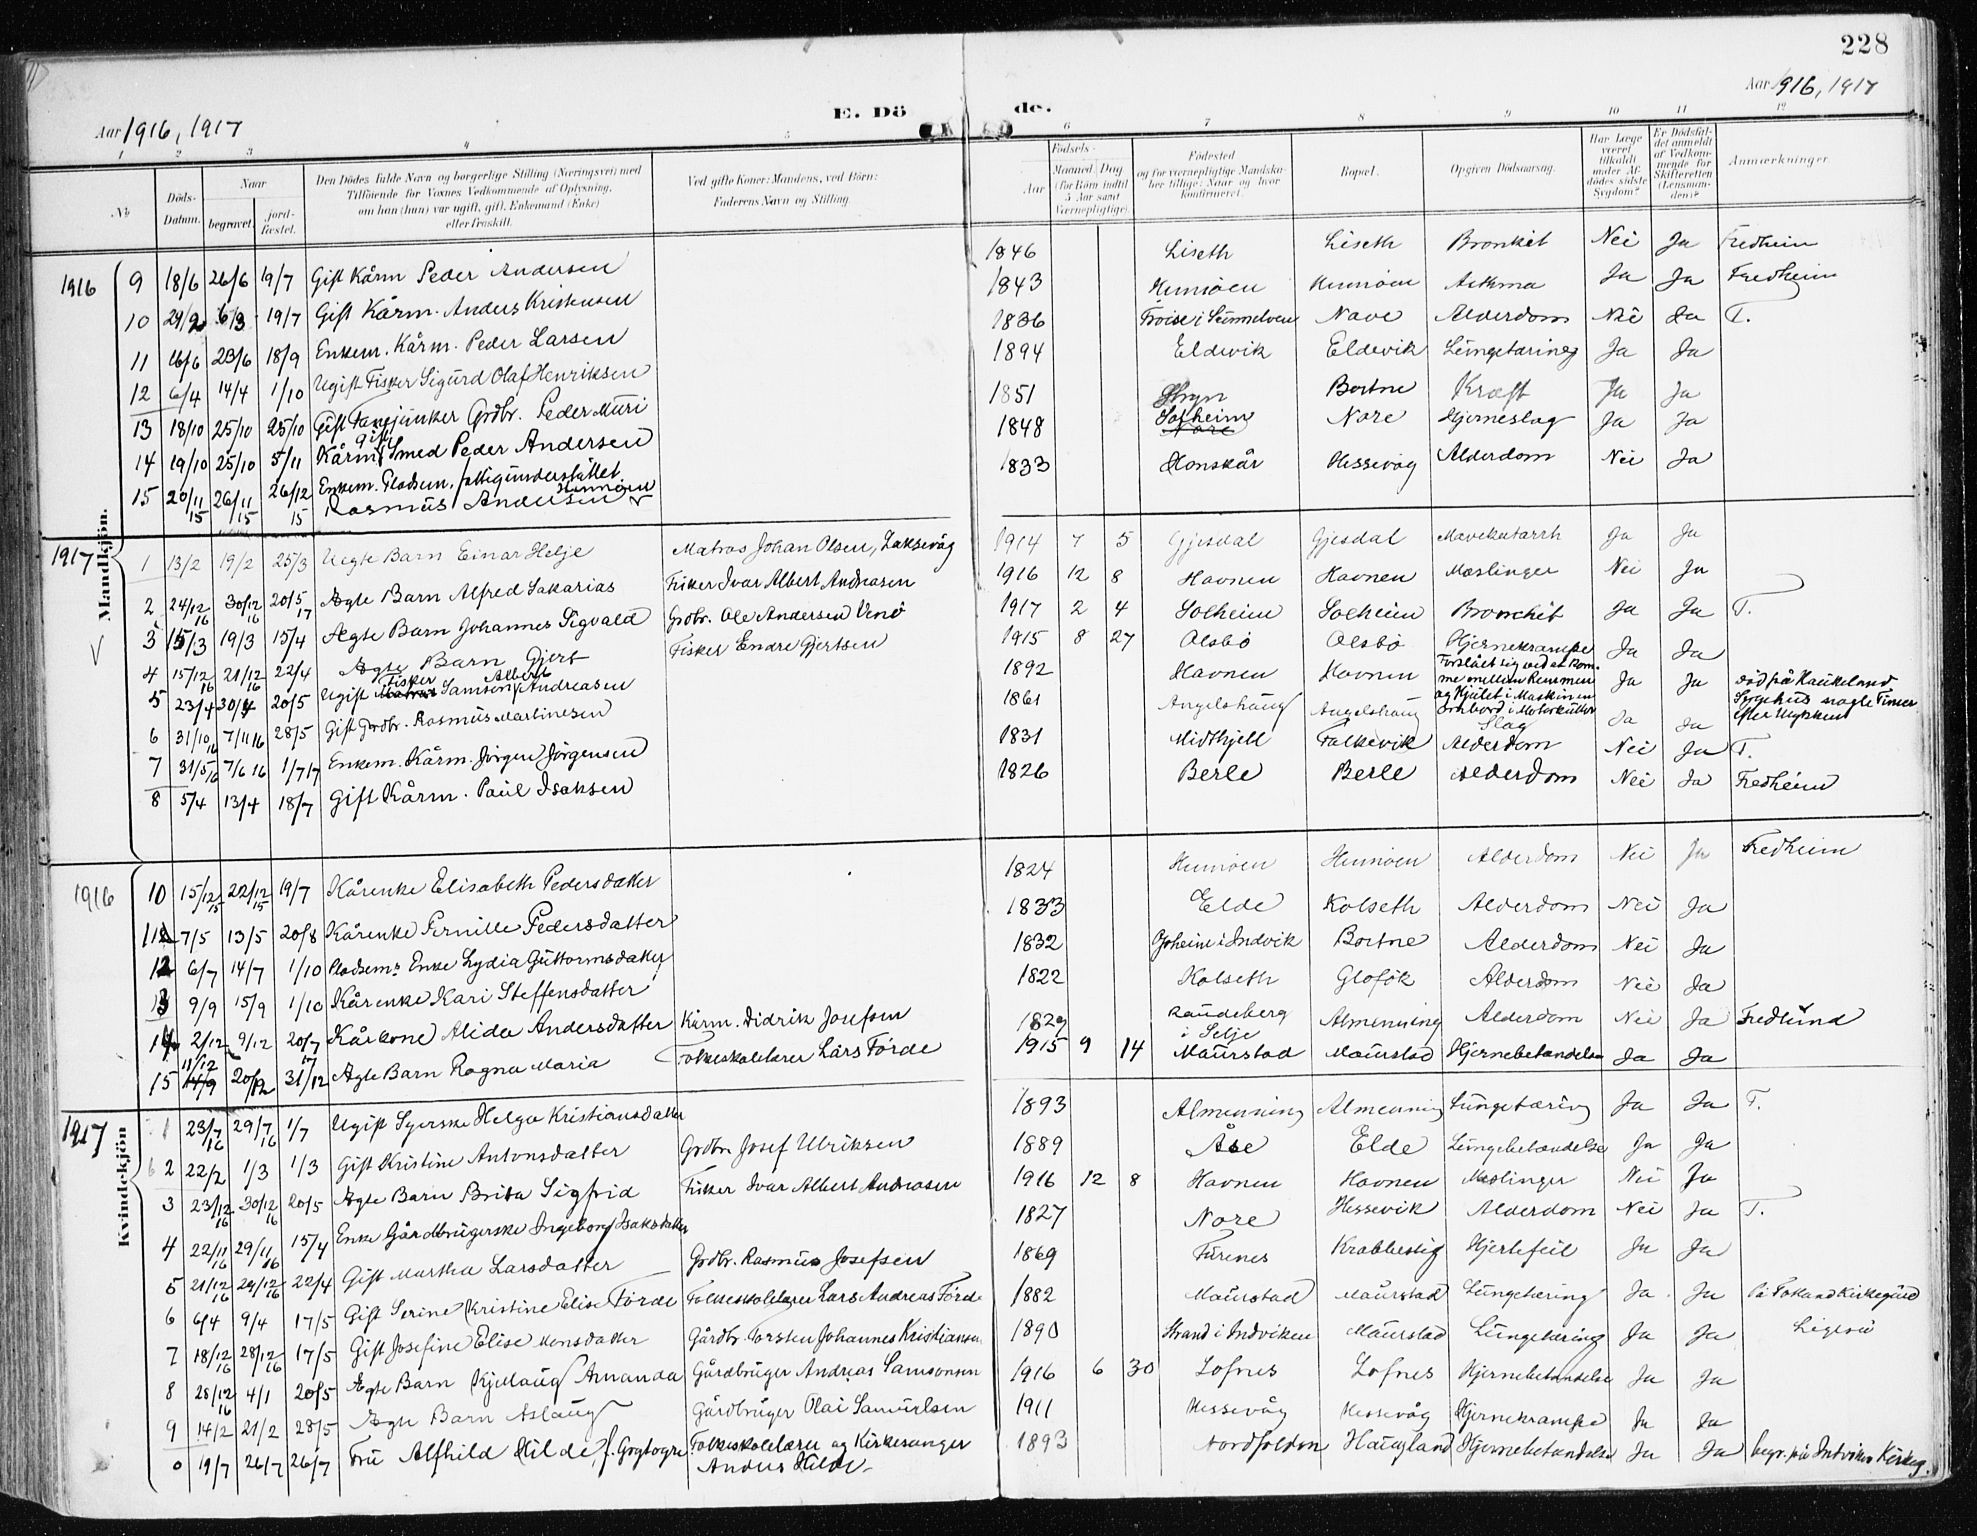 228
Aar 1916, 1917
E. Dö de.
Aar 1916, 1917
1 2 3 4 5 6 7 8 9 10 11 12
No Döds-Datum. Naar begravet jord-fæstet. Den Dödes fulde Navn og borgerlige Stilling (Næringsvei) med Tilföiende for Voxnes Vedkommende af Oplysning, om han (hun) var ugift, gift, Enkemand (Enke) eller fraskilt. Ved gifte Koner: Mandens, ved Börn: Faderens Navn og Stilling. Födsels- Aar Maaned Dag (for Börn indtil 5 Aar samt Værnepligtige). Födested og for værnepligtige Mandskaber tillige: Naar og hvor konfirmeret. Bopæl. Opgiven Dödsaarsag. Har Læge været tilkaldt under Afdödes sidste Sygdom? Er Dödsfaldet anmeldt af Vedkommende for Skifteretten (Lensmanden)? Anmærkninger
Mandkjön.
1916 9 18/6 26/6 19/7 Gift Kårm Peder Andersen 1846 Liseth Liseth Bronkit Nei Ja Fredheim
10 29/2 6/3 19/7 Gift Kårm. Anders Kristensen 1843 Hennöen Hennöen Astma Ja Ja Fredheim
11 16/6 23/6 18/9 Enkem. Kårm. Peder Larsen 1836 Nave Alderdom Nei Ja T.
12 6/4 14/4 1/10 Ugift Fisker Sigurd Olaf Henriksen 1894 Eldevik Eldevik Lungetæring Ja Ja
13 18/10 25/10 25/10 Gift Fanejunker Grdbr. Peder Muri 1851 Stryn Bortne Kræft Ja Ja
14 19/10 25/10 5/11 Kårm gift Smed Peder Andersen 1848 Solheim Nore Nore Hjerneslag Ja Ja
15 20/11 15 26/11 15 26/12 15 Enkem. Pladsm. fattigunderstöttet Rasmus Andersen Hennöen 1833 Honskår Hessevåg Alderdom Nei Ja
1917 1 13/2 19/2 25/3 Uegte Barn Einar Helje Matros Johan Olsen, Laksevåg 1914 7 5 Gjesdal Gjesdal Mavekatarrh Ja Ja
2 24/12 16 30/12 16 20/5 17 Ægte Barn Alfred Sakarias Fisker Ivar Albert Andreasen 1916 12 8 Havnen Havnen Mæslinger Nei Ja
3 15/3 19/3 15/4 Ægte Barn Johannes Sigvald Grdbr. Ole Andersen 1917 2 4 Solheim Solheim Bronchit Ja Ja T.
4 15/12 16 21/12 16 22/4 Ægte Barn Gjert Fisker Endre Gjertsen 1915 8 27 Olsbö Olsbö Hjernekrampe Ja Ja
5 23/4 30/4 20/5 Ugift Matros Fisker Samson Albert Andreasen 1892 Havnen Havnen Forslået sig ved at komme mellem Remmen og Hjulet i Maskinen ombord i Motorkutter Ja Ja död på Haukeland Sygehus nogle Timer efter Ulykken
6 31/10 16 7/11 16 28/5 Gift Grdbr. Rasmus Martinesen 1861 Angelshaug Angelshaug Slag Ja Ja
7 31/5 16 7/6 16 1/7 17 Enkem. Kårm. Jörgen Jörgensen 1831 Midthjell Falkevik Alderdom Nei Ja T.
8 5/4 13/4 18/7 Gift Kårm. Paul Isaksen 1826 Berle Berle Alderdom Nei Ja Fredheim
Kvindekjön
1916 10 15/12 15 22/12 15 19/7 Kårenke Elisabeth Pedersdatter 1824 Hennöen Hennöen Alderdom Nei Ja Fredheim
11 7/5 13/5 20/8 Kårenke Pernille Pedersdatter 1833 Elde Kolseth Alderdom Nei Ja
12 6/7 14/7 1/10 Pladsem.s Enke Lydia Guttormsdatter 1832 Opheim i Indvik Bortne Alderdom Nei Ja
13 9/9 15/9 1/10 Kårenke Kari Steffensdatter 1822 Kolseth Glofök Alderdom Nei Ja
14 2/12 9/12 20/7 17 Kårkone Alida Andersdatter Kårm. Didrik Josefsen 1829 Raudeberg i Selje Almenning Alderdom Nei Ja Fredlund
15 11/12 20/12 31/12 Ægte Barn Ragna Maria Folkeskolelærer Lars Förde 1915 9 14 Maurstad Maurstad Hjernebetændelse Ja Ja
1917 1 23/7 16 29/7 16 1/7 Ugift Syerske Helga Kristiansdatter 1893 Almenning Almenning Lungetæring Ja Ja T.
2 22/2 1/3 1/3 Gift Kristine Antonsdatter Grdbr. Josef Ulriksen 1889 Åse Elde Lungebetændelse Ja Ja
3 23/12 16 30/12 16 20/5 Ægte Barn Brita Sigfrid Fisker Ivar Albert Andreasen 1916 12 8 Havnen Havnen Mæslinger Nei Ja
4 22/11 16 29/11 16 15/4 Enke Gårdbrugerske Ingeborg Isaksdatter 1827 Nore Hessevik Alderdom Nei Ja T.
5 21/12 16 29/12 16 22/4 Gift Martha Larsdatter Grdbr. Rasmus Josefsen 1869 Furenes Krabbestig Hjertefeil Ja Ja
6 6/4 9/4 17/5 Gift Serine Kristine Elise Förde Folkeskolelærer Lars Andreas Förde 1882 Maurstad Maurstad Lungetæring Ja Ja På Totland Kirkegård
7 18/12 16 28/12 16 17/5 Gift Josefine Elise Monsdatter Gårdbr. Torsten Johannes Kristiansen 1890 Strand i Indviken Maurstad Lungetæring Ja Ja Ligeså
8 28/12 16 4/1 20/5 Ægte Barn Kjellaug Amanda Gårdbruger Andreas Samsonsen 1916 6 30 Lofnes Lofnes Hjernebetændelse Ja Ja
9 14/2 21/2 28/5 Ægte Barn Aslaug Gårdbruger Olai Samuelsen 1911 Hessevåg Hessevåg Hjernekrampe Ja Ja
0 19/7 26/7 26/7 Fru Alfhild Hilde, f. Folkeskolelærer og Kirkesanger Anders Hilde 1893 Nordfolden Haugland Hjernebetændelse Ja Ja begr. på Indviken Kirkeg.